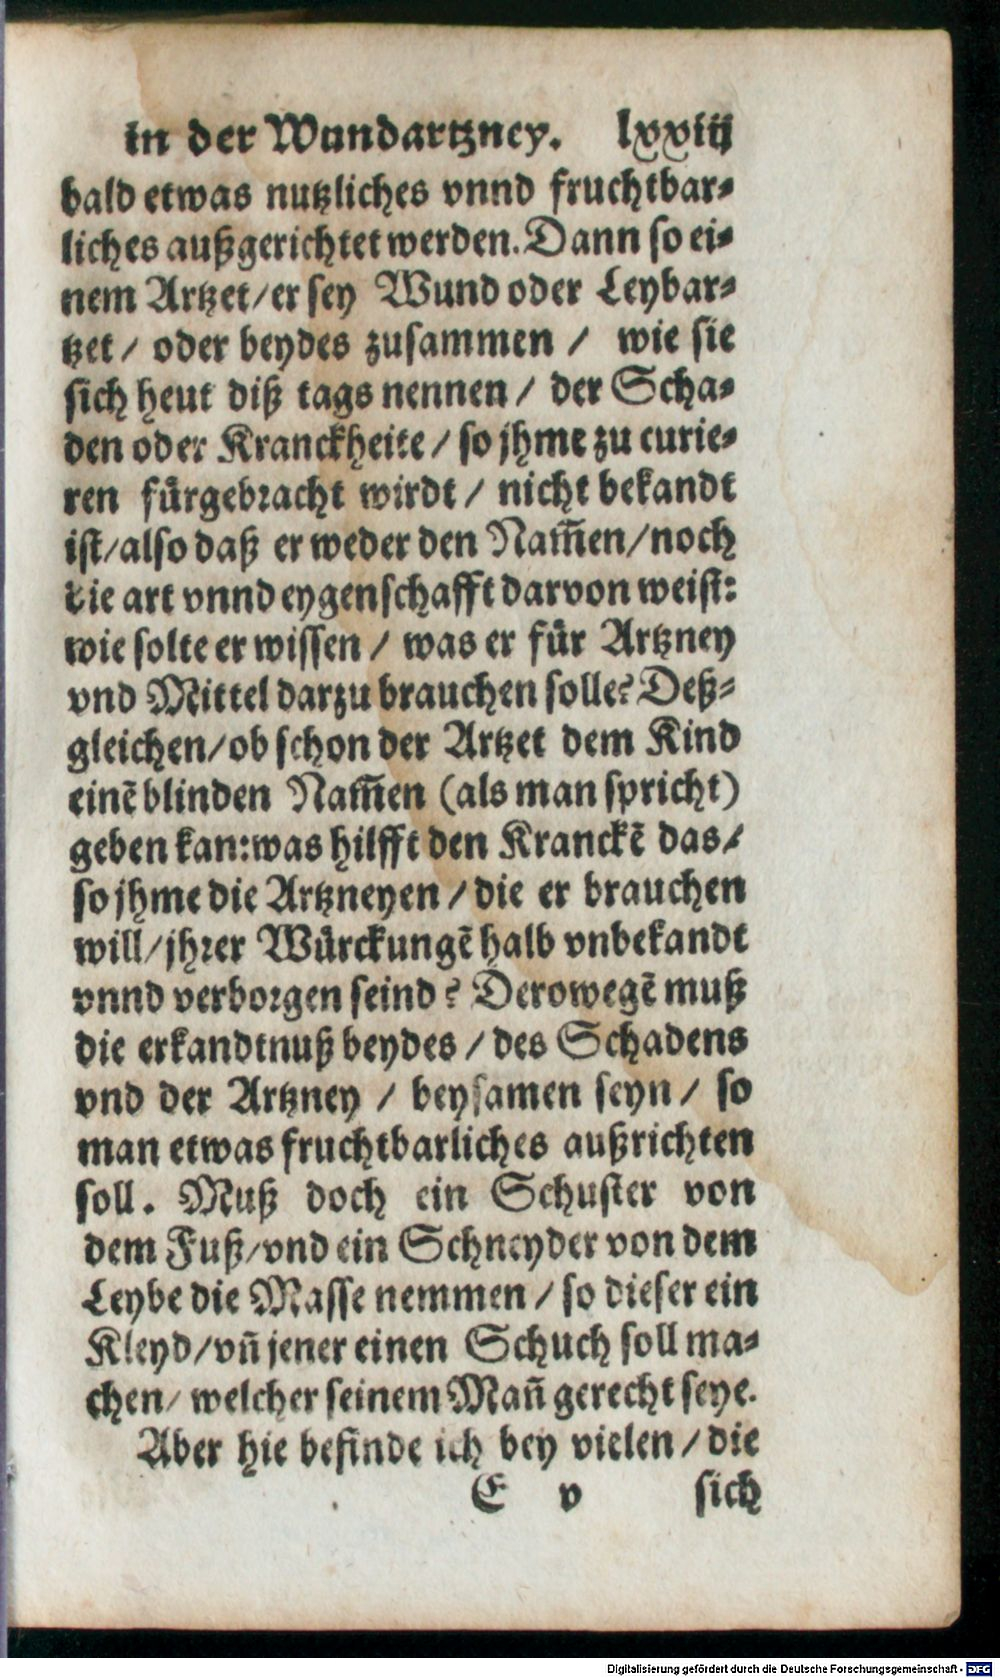 in der Wundartzney. lxxiij
bald etwas nutzliches vnnd fruchtbar⸗
liches außgerichtet werden. Dann so ei⸗
nem Artzet/ er sey Wund oder Leybar⸗
tzet / oder beydes zusammen / wie sie
sich heut diß tags nennen / der Scha⸗
den oder Kranckheite / so jhme zu curie⸗
ren fürgebracht wirdt / nicht bekandt
ist/ also daß er weder den Nam̃en/ noch
die art vnnd eygenschafft darvon weist:
wie solte er wissen / was er für Artzney
vnd Mittel darzu brauchen solle? Deß⸗
gleichen/ ob schon der Artzet dem Kind
einẽ blinden Nam̃en (als man spricht)
geben kan: was hilfft den Kranckẽ das/
so jhme die Artzneyen / die er brauchen
will/ jhrer Würckungẽ halb vnbekandt
vnnd verborgen seind? Derowegẽ muß
die erkandtnuß beydes / des Schadens
vnd der Artzney / beysamen seyn / so
man etwas fruchtbarliches außrichten
soll. Muß doch ein Schuster von
dem Fuß/ vnd ein Schneyder von dem
Leybe die Masse nemmen / so dieser ein
Kleyd/ vñ jener einen Schuch soll ma⸗
chen/ welcher seinem Mañ gerecht seye.
Aber hie befinde ich bey vielen / die
E v sich
Digitalisierung gefördert durch die Deutsche Forschungsgemeinschaft - DFG